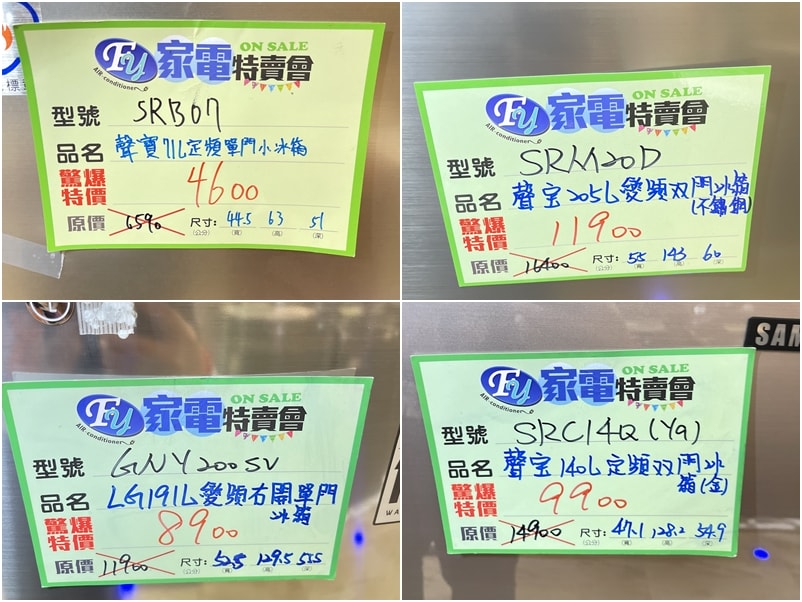 Fy
AIR-conditioner
家電特賣會
ON SALE
型號 SRB07
品名 聲寶71L定頻單門小冰箱
驚爆特價 4600
原價 6590 尺寸: 44.5 63 51
(公分) (寬) (高) (深)
Fy
AIR-conditioner
家電特賣會
ON SALE
型號 SRM20D
品名 聲宝205L變頻双門冰箱
(不鏽鋼)
驚爆特價 11900
原價 16400 尺寸: 55 143 60
(公分) (寬) (高) (深)
Fy
AIR-conditioner
家電特賣會
ON SALE
型號 GNY200SV
品名 LG191L變頻右開單門
冰箱
驚爆特價 8900
原價 11900 尺寸: 52.5 129.5 53.5
(公分) (寬) (高) (深)
SAM
Fy
AIR-conditioner
家電特賣會
ON SALE
型號 SRC14Q(Y9)
品名 聲宝140L定頻双門冰
箱(金)
驚爆特價 9900
原價 14900 尺寸: 47.1 128.2 54.9
(公分) (寬) (高) (深)